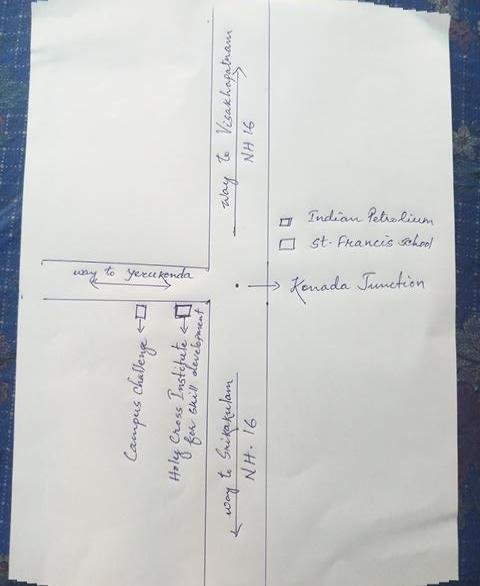 way to Visakhapatnam
NH 16
Indian Petrolium
St. Francis school
way to Yerukonda
Konada Junction
Campus Challenge
Holy Cross Institute
for skill development
way to Srikakulam
NH. 16